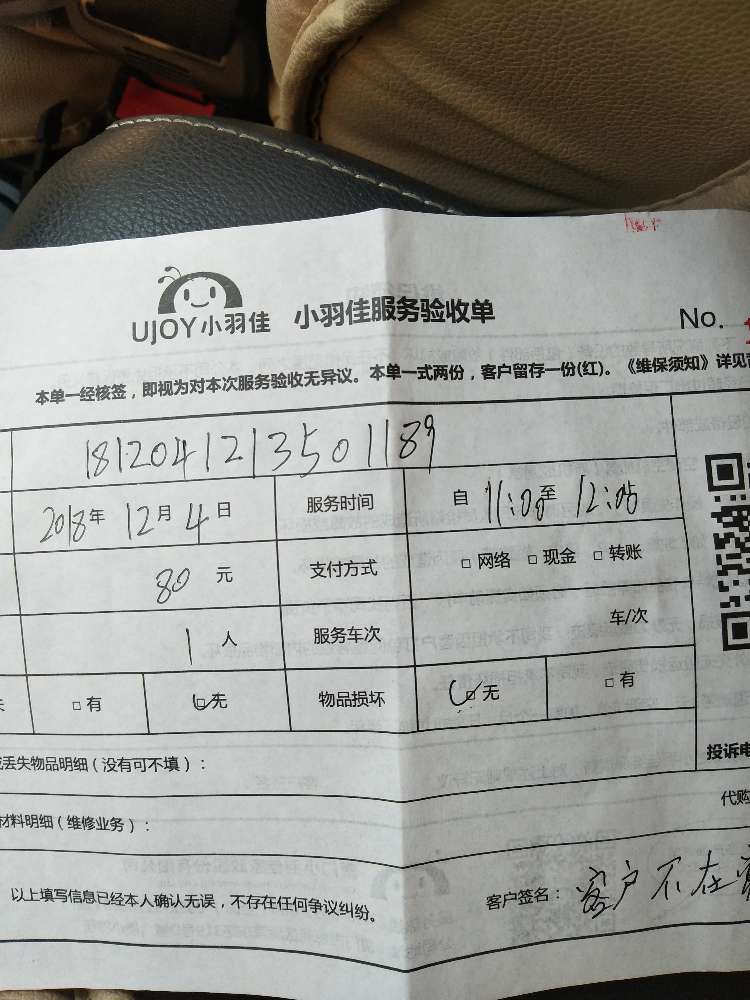 UJOY小羽佳 小羽佳服务验收单
No.
本单一经核签，即视为对本次服务验收无异议。本单一式两份，客户留存一份(红)。《维保须知》详见
1812041213501189
2018年12月4日 服务时间 自11:00至12:00
80元 支付方式 □网络 □现金 □转账
1人 服务车次 车/次
□有 □无 物品损坏 □无 □有
丢失物品明细（没有可不填）：
投诉电
材料明细（维修业务）：
代购
以上填写信息已经本人确认无误，不存在任何争议纠纷。
客户签名：客户不在